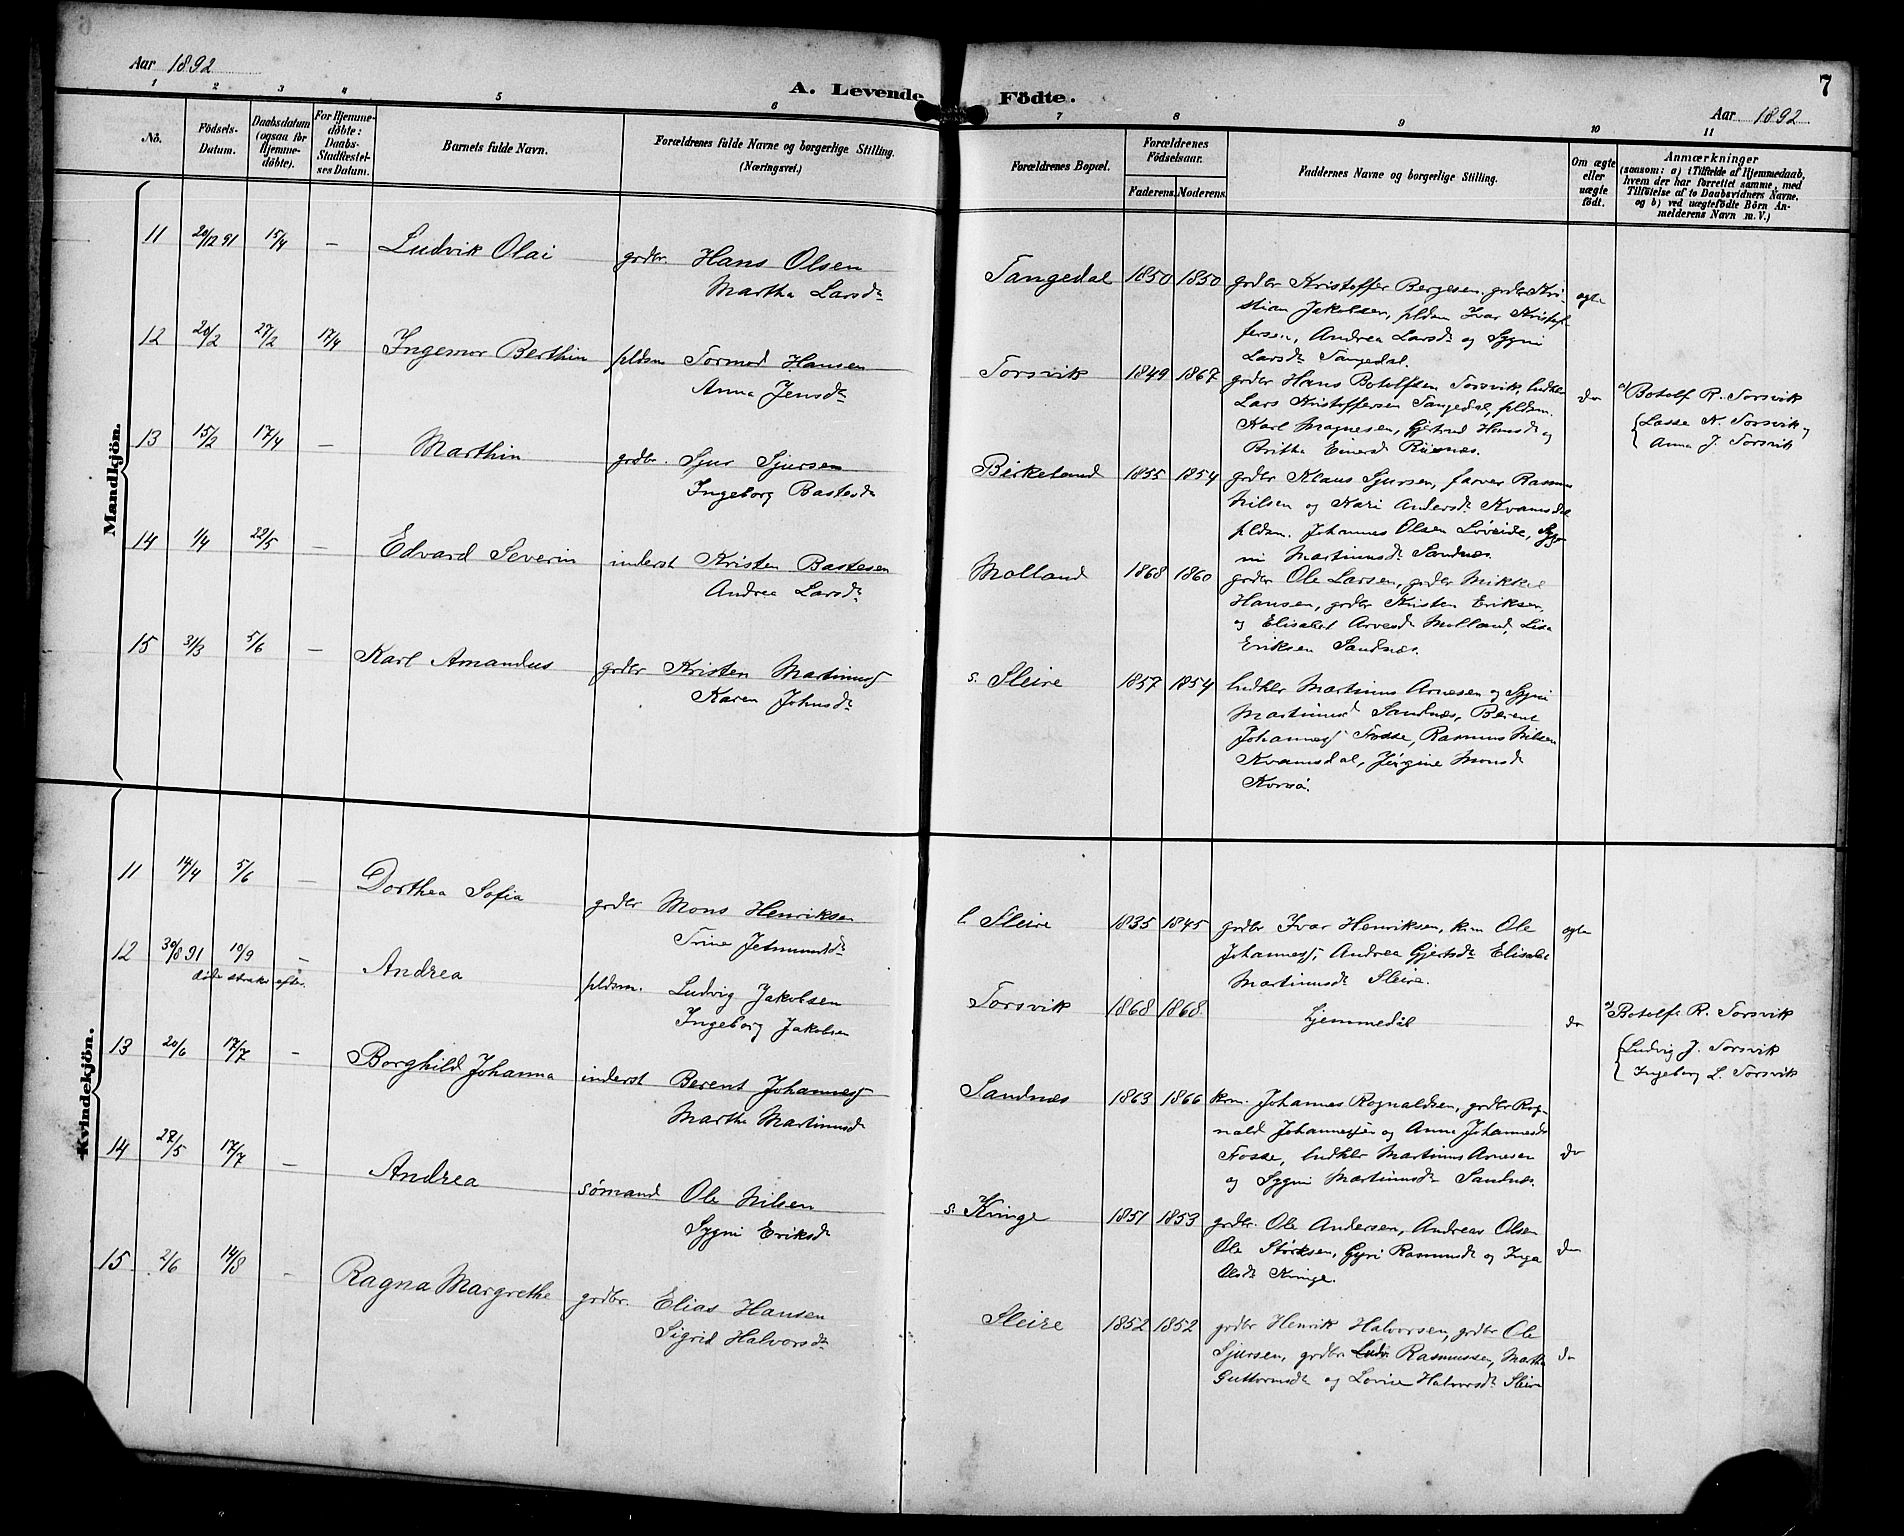 Aar 1892
A. Levende Födte.
7
Aar 1892
1 2 3 4 5 6 7 8 9 10 11
Nô.
Födsels-
Datum.
Daabsdatum
(ogsaa för
Hjemme-
döbte).
For Hjemme-
döbte:
Daabs-
Stadfæstel-
ses Datum.
Barnets fulde Navn.
Forældrenes fulde Navne og borgerlige Stilling.
(Næringsvei.)
Forældrenes Bopæl.
Forældrenes
Födselsaar.
Faderens. Moderens.
Faddernes Navne og borgerlige Stilling.
Om ægte
eller
uægte
födt.
Anmærkninger
(saasom: a) i Tilfælde af Hjemmedaab,
hvem der har forrettet samme, med
Tilföielse af to Daabsvidners Navne,
og b) ved uægtefödte Börn An-
melderens Navn m. V.)
Mandkjön.
11 20/12 91 15/4 — Ludvik Olai grdbr. Hans Olsen
Martha Larsdr
Tangedal 1850 1850 grdbr Kristoffer Bergesen, grdbr Kri-
stian Jakobsen, pldsm Ivar Kristof-
fersen, Andrea Larsdr og Sygni
Larsdr Tangedal.
ægte
12 20/2 27/2 17/4 Ingemor Berthin pldsm Tormod Hansen
Anna Jensdr
Torsvik 1849 1867 grdbr Hans Botolfsen Torsvik, ludklr
Lars Kristoffersen Tangedal, pldsm.
Karl Magnesen, Gjertrud Hansdr og
Britha Einersdr Risnæs.
do
a) Botolf R. Torsvik
Lasse N. Torsvik og
Anna J. Torsvik
13 15/2 17/4 — Marthin grdbr. Sjur Sjursen
Ingeborg Bastesdr
Birkeland 1855 1854 grdbr Klaus Sjursen, farver Rasmus
Nilsen og Kari Andersdr Kvamsdal
pldsm. Johannes Olsen Løveide, Syg-
ni Martinusdr Sandnæs.
14 1/4 22/5 — Edvard Severin inderst Kristen Bastesen
Andrea Larsdr
Molland 1868 1860 grdbr Ole Larsen, grdbr Mikkel
Hansen, grdbr Kristen Eriksen,
og Elisabet Arvesdr Molland, Lisa
Eriksen Sandnæs.
15 31/3 5/6 — Karl Amandus grdbr Kristen Martinus
Karen Johnsdr
s. Sleire 1857 1854 ludklr Martinus Arnesen og Sygni
Martinusdr Sandnæs, Berent
Johanness Fosse, Rasmus Nilsen
Kvamsdal, Jørgine Monsdr
Kvindekjön.
11 14/4 5/6 — Dorthea Sofia grdbr Mons Henriksen
Trine Jetmundsdr
l Sleire 1835 1845 grdbr Ivar Henriksen, km Ole
Johanness, Andrea Gjertsdr Elisabet
Martinusdr Sleire.
ægte
12 30/8 91 10/9 — Andrea pldsm. Ludvig Jakobsen
døde straks efter. Ingeborg Jakobsen
Torsvik 1868 1868 Hjemmedøbt
do
a) Botolf R. Torsvik
Ludvig J. Torsvik
Ingeborg L. Torsvik
13 20/6 17/7 — Borghild Johanna inderst Berent Johanness
Martha Martinusdr
Sandnæs 1863 1866 km. Johannes Rognaldsen, grdbr Rog-
nald Johannessen og Anna Johannesdr
Fosse, ludklr Martinus Arnesen
og Sygni Martinusdr Sandnæs.
do
14 27/5 17/7 — Andrea sømand Ole Nilsen
Sygni Eriksdr
s. Kvinge 1851 1853 grdbr. Ole Andersen, Andreas Olsen
Ole Størksen, Gyri Rasmusdr og Inga
Olsdr Kvinge.
do
15 2/6 14/8 — Ragna Margrethe grdbr. Elias Hansen
Sigrid Halvorsdr
Sleire 1852 1852 grdbr Henrik Halvorsen, grdbr Ole
Sjursen, grdbr Rasmussen, Martha
Guttormsdr og Lovise Halvorsdr Sleire
do